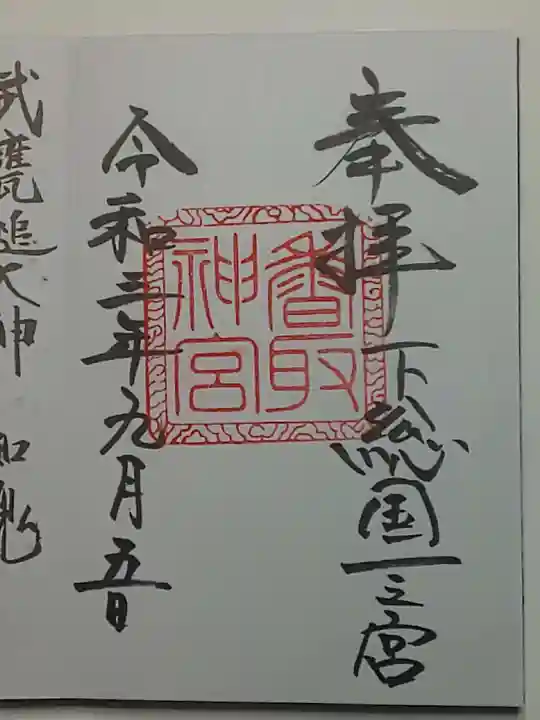 奉拝 下総国一之宮
香取神宮
令和三年九月五日
武甕槌大神